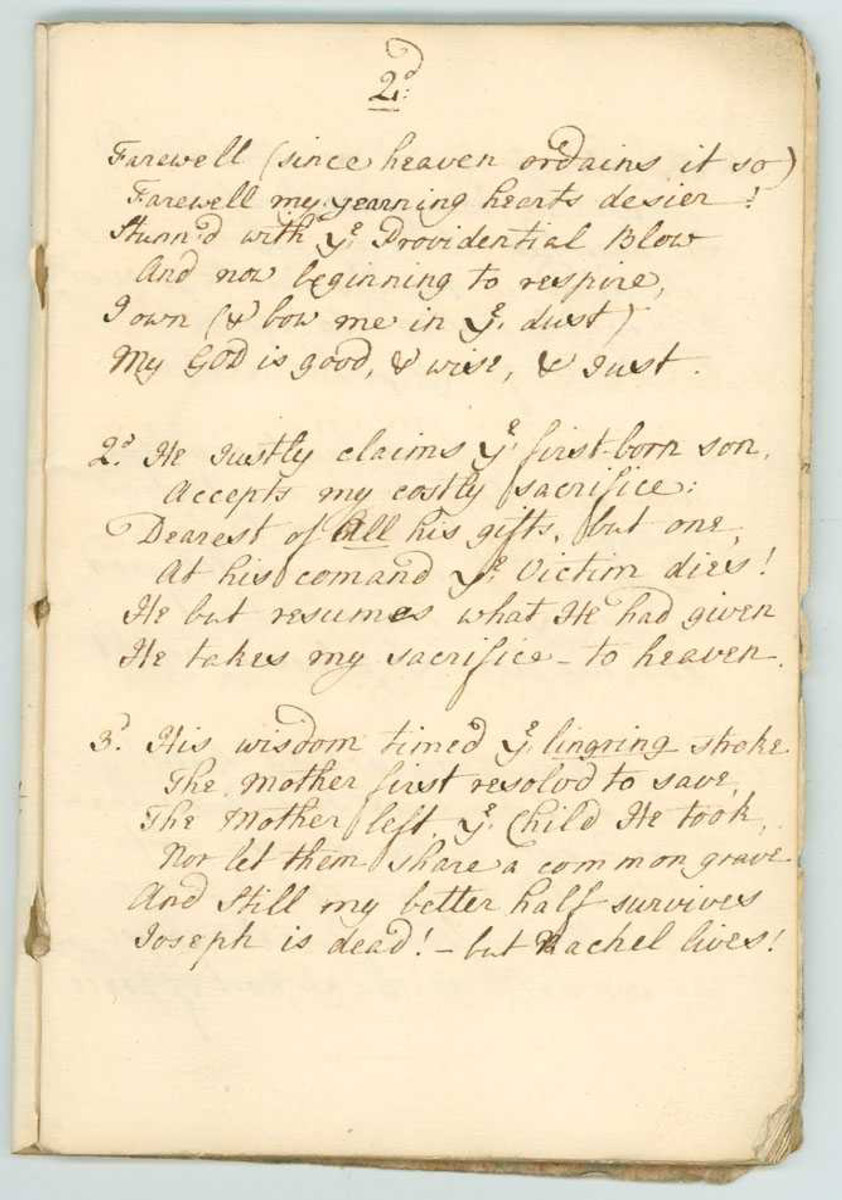 2d:
Farewell (since heaven ordains it so)
Farewell my yearning hearts desier!
Stunn'd with ye. Providential Blow
And now beginning to respire,
I own (& bow me in ye. dust)
My GOD is good, & wise, & Just.
2d. He Justly claims ye. first-born son,
Accepts my costly sacrifice:
Dearest of All his gifts, but one,
At his comand ye. Victim dies!
He but resumes what He had given
He takes my sacrifice - to heaven.
3d. His wisdom timed ye. lingring stroke
The Mother first resolvd to save,
The Mother left, ye. Child He took,
Nor let them share a common grave
And Still my better half survives
Joseph is dead! - but Rachel lives!